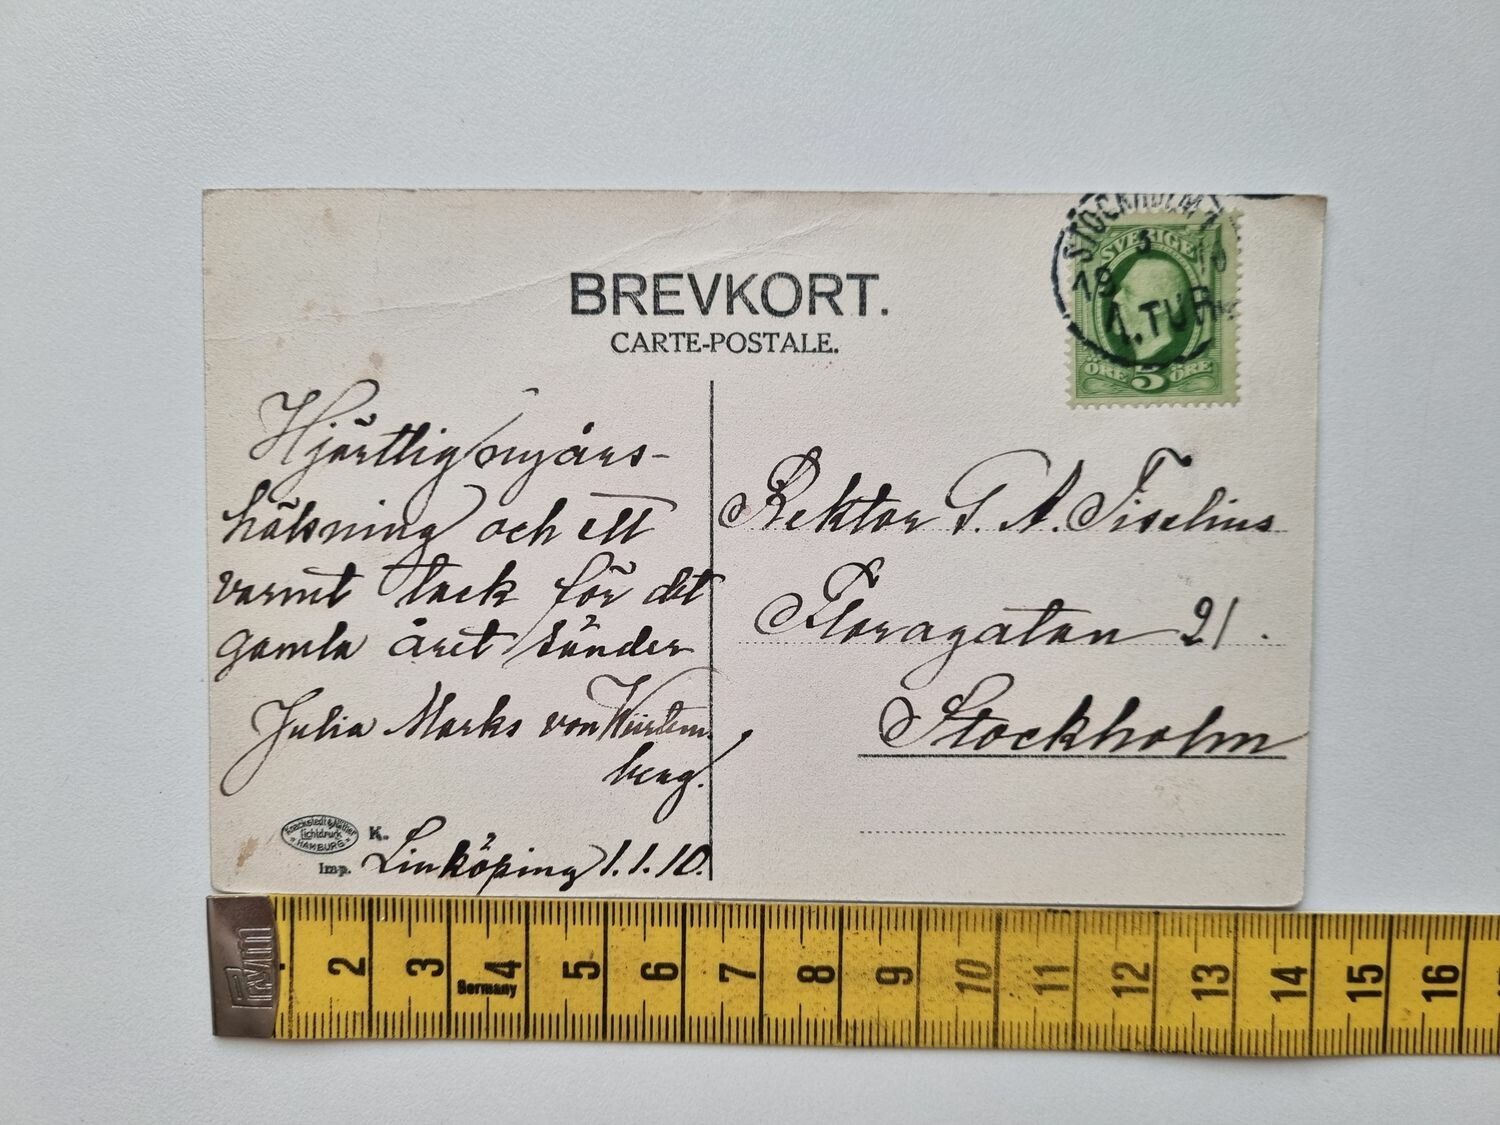 BREVKORT.
CARTE-POSTALE.
STOCKHOLM
19 3
1. TUR
SVERIGE
ÖRE 5 ÖRE
Hjärtlig nyårs-
hälsning och ett
varmt tack för det
gamla året sänder
Julia Marks von Würtem
berg.
Linköping 1.1.10.
Rektor G. A. Tiselius
Floragatan 21.
Stockholm
Knackstedt & Näther
Lichtdruck
HAMBURG
K.
Imp.
Prym
2 3 4 5 6 7 8 9 10 11 12 13 14 15 16
Germany